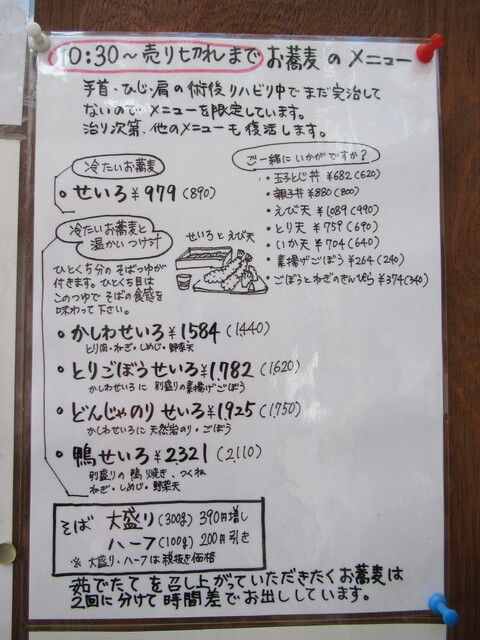 10:30～売り切れまで お蕎麦のメニュー
手首・ひじ・肩の術後リハビリ中でまだ完治して
ないのでメニューを限定しています。
治り次第、他のメニューも復活します。
冷たいお蕎麦
・せいろ ¥979 (890)
ご一緒にいかがですか？
・玉子とじ丼 ¥682 (620)
・親子丼 ¥880 (800)
・えび天 ¥1089 (990)
・とり天 ¥759 (690)
・いか天 ¥704 (640)
・素揚げごぼう ¥264 (240)
・ごぼうとねぎのきんぴら ¥374 (340)
冷たいお蕎麦と
温かいつけ汁
せいろとえび天
ひとくち分のそばつゆが
付きます。ひとくち目は
このつゆでそばの食感を
味わって下さい。
・かしわせいろ ¥1584 (1440)
とり肉・ねぎ・しめじ・野菜天
・とりごぼうせいろ ¥1,782 (1620)
かしわせいろに 別盛りの素揚げごぼう
・どんじゃのりせいろ ¥1,925 (1,750)
かしわせいろに天然岩のり・ごぼう
・鴨せいろ ¥2,321 (2,110)
別盛りの鴨焼き、つくね
ねぎ・しめじ・野菜天
そば 大盛り (300g) 390円増し
ハーフ (100g) 200円引き
※ 大盛り・ハーフは税抜き価格
茹でたてを召し上がっていただきたくお蕎麦は
2回に分けて時間差でお出ししています。